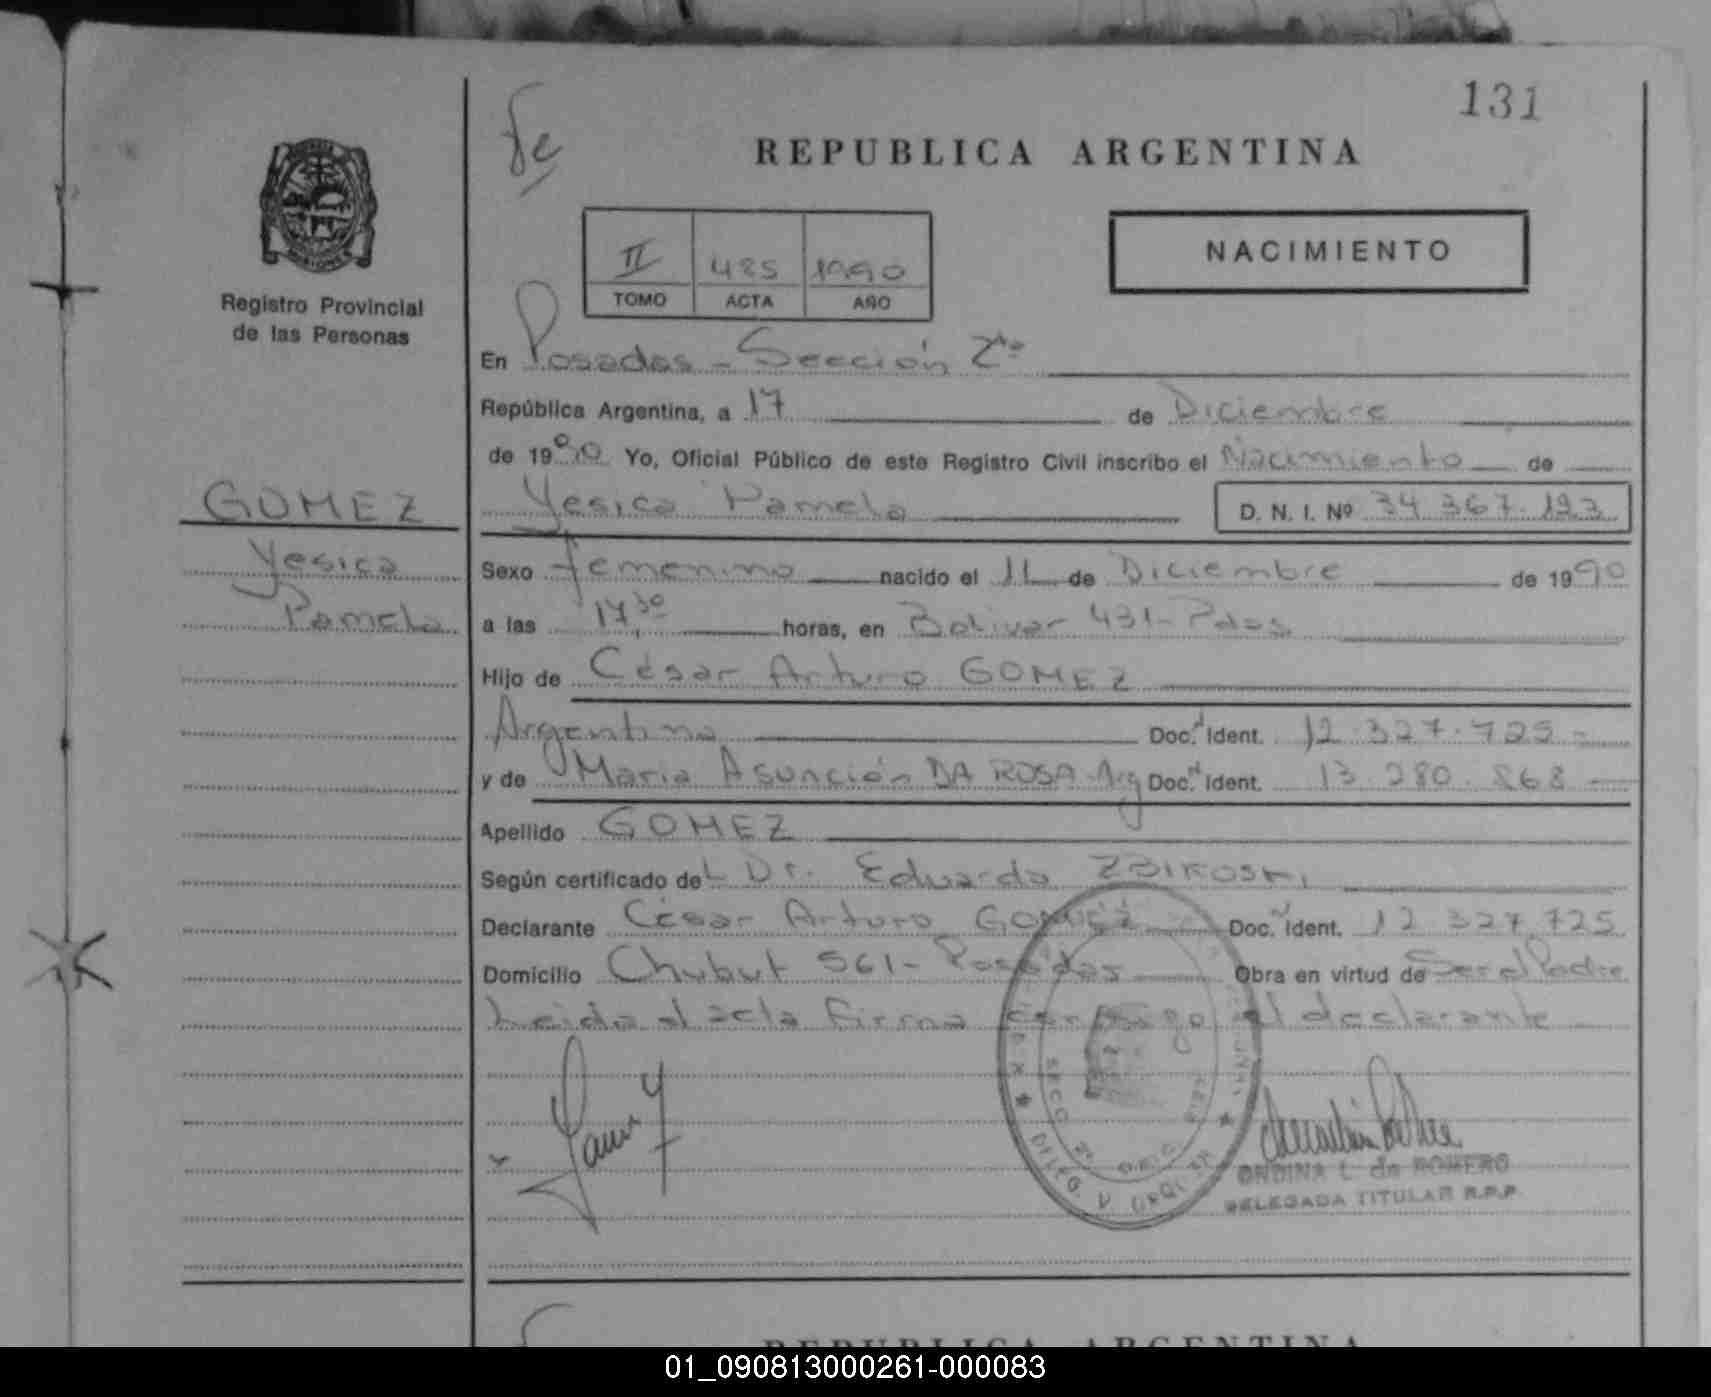 131
REPUBLICA ARGENTINA
NACIMIENTO
II 485 1990
TOMO ACTA AÑO
MISIONES
Registro Provincial
de las Personas
En Posadas - Sección 2da
República Argentina, a 17 de Diciembre
de 1990 Yo, Oficial Público de este Registro Civil inscribo el Nacimiento de
GOMEZ
Yesica Pamela D. N. I. Nº 34 367.123
Yesica
Sexo femenino nacido el 11 de Diciembre de 1990
Pamela
a las 17 30 horas, en Bolivar 431 - Pdas
Hijo de César Arturo GOMEZ
Argentino Doc. Ident. 12.327.725 -
y de Maria Asunción DA ROSA - Arg Doc. Ident. 13.280.868
Apellido GOMEZ
Según certificado del Dr. Eduardo ZBIKOSKI
Declarante César Arturo GOMEZ Doc. Ident. 12 327.725
Domicilio Chubut 561 - Posadas Obra en virtud de Ser el Padre
Leida el acta firma conmigo el declarante
ONDINA L. de ROMERO
DELEGADA TITULAR R.P.P.
REPUBLICA ARGENTINA
01_090813000261-000083